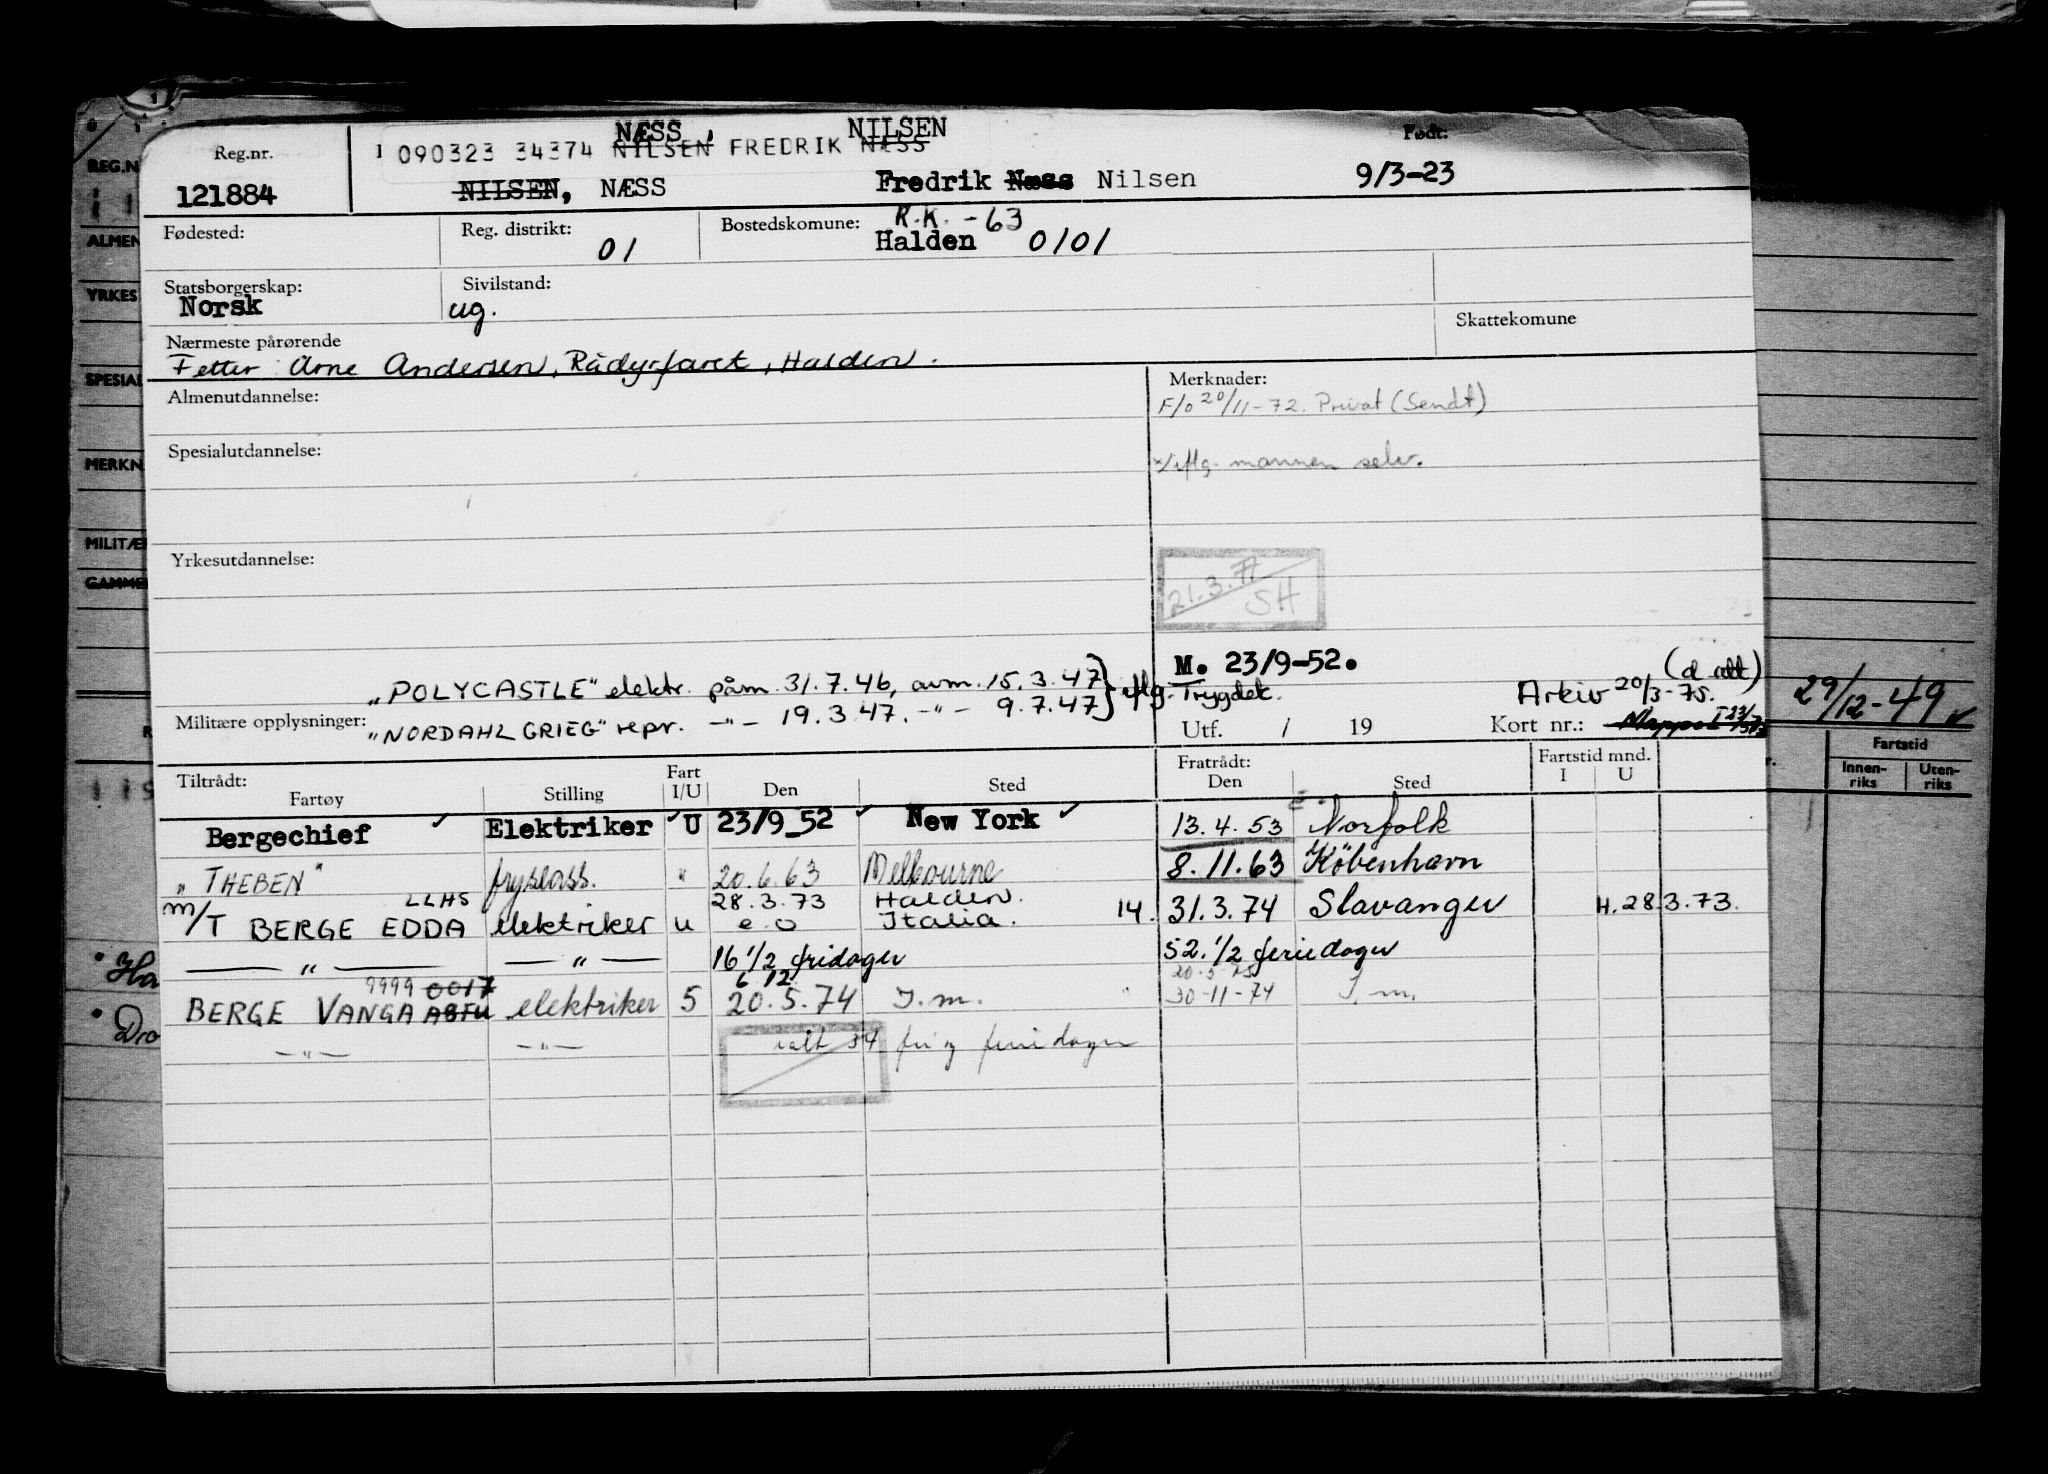 NÆSS, NILSEN Født:
Reg.nr. 1 090323 34374 NILSEN FREDRIK NÆSS
121884 NILSEN, NÆSS Fredrik Næss Nilsen 9/3-23
R.K. -63
Fødested: Reg. distrikt: 01 Bostedskomune: Halden 0101
Statsborgerskap: Sivilstand:
Norsk ug.
Skattekomune
Nærmeste pårørende
Fetter: Arne Andersen, Rådyrfaret, Halden.
Almenutdannelse: Merknader:
F/o 20/11-72. Privat (Sendt)
Spesialutdannelse:
x/iflg. mannen selv.
Yrkesutdannelse:
21.3.77
SH
M. 23/9-52.
„POLYCASTLE" elektr. påm. 31.7.46, avm. 15.3.47 } iflg. Trygdek. Arkiv 20/3-75.
Militære opplysninger: „NORDAHL GRIEG" repr. -"- 19.3.47. -"- 9.7.47
Utf. / 19 Kort nr.:
29/12-49
Tiltrådt: Fratrådt: Fartstid mnd.
Fartøy Stilling Fart I/U Den Sted Den Sted I U
Bergechief Elektriker U 23/9_52 New York 13.4.53 Norfolk
„THEBEN" fryseass. " 20.6.63 Melbourne 8.11.63 København
LLHS 28.3.73 Halden.
M/T BERGE EDDA elektriker u e.o Italia. 14. 31.3.74 Stavanger H. 28.3.73.
— " — — " — 16 1/2 fridager 52.1/2 feriedager
9999 0017 6 12 20.5.75
BERGE VANGA elektriker 5 20.5.74 I.m. 30-11-74 I.m.
-"- -"- ialt 34 fri og feriedager
REG.N
ALMEN
YRKES
SPESIAL
MERKN
MILITÆ
GAMME
Fartstid
Innen-
riks
Uten-
riks
Ha
Dro